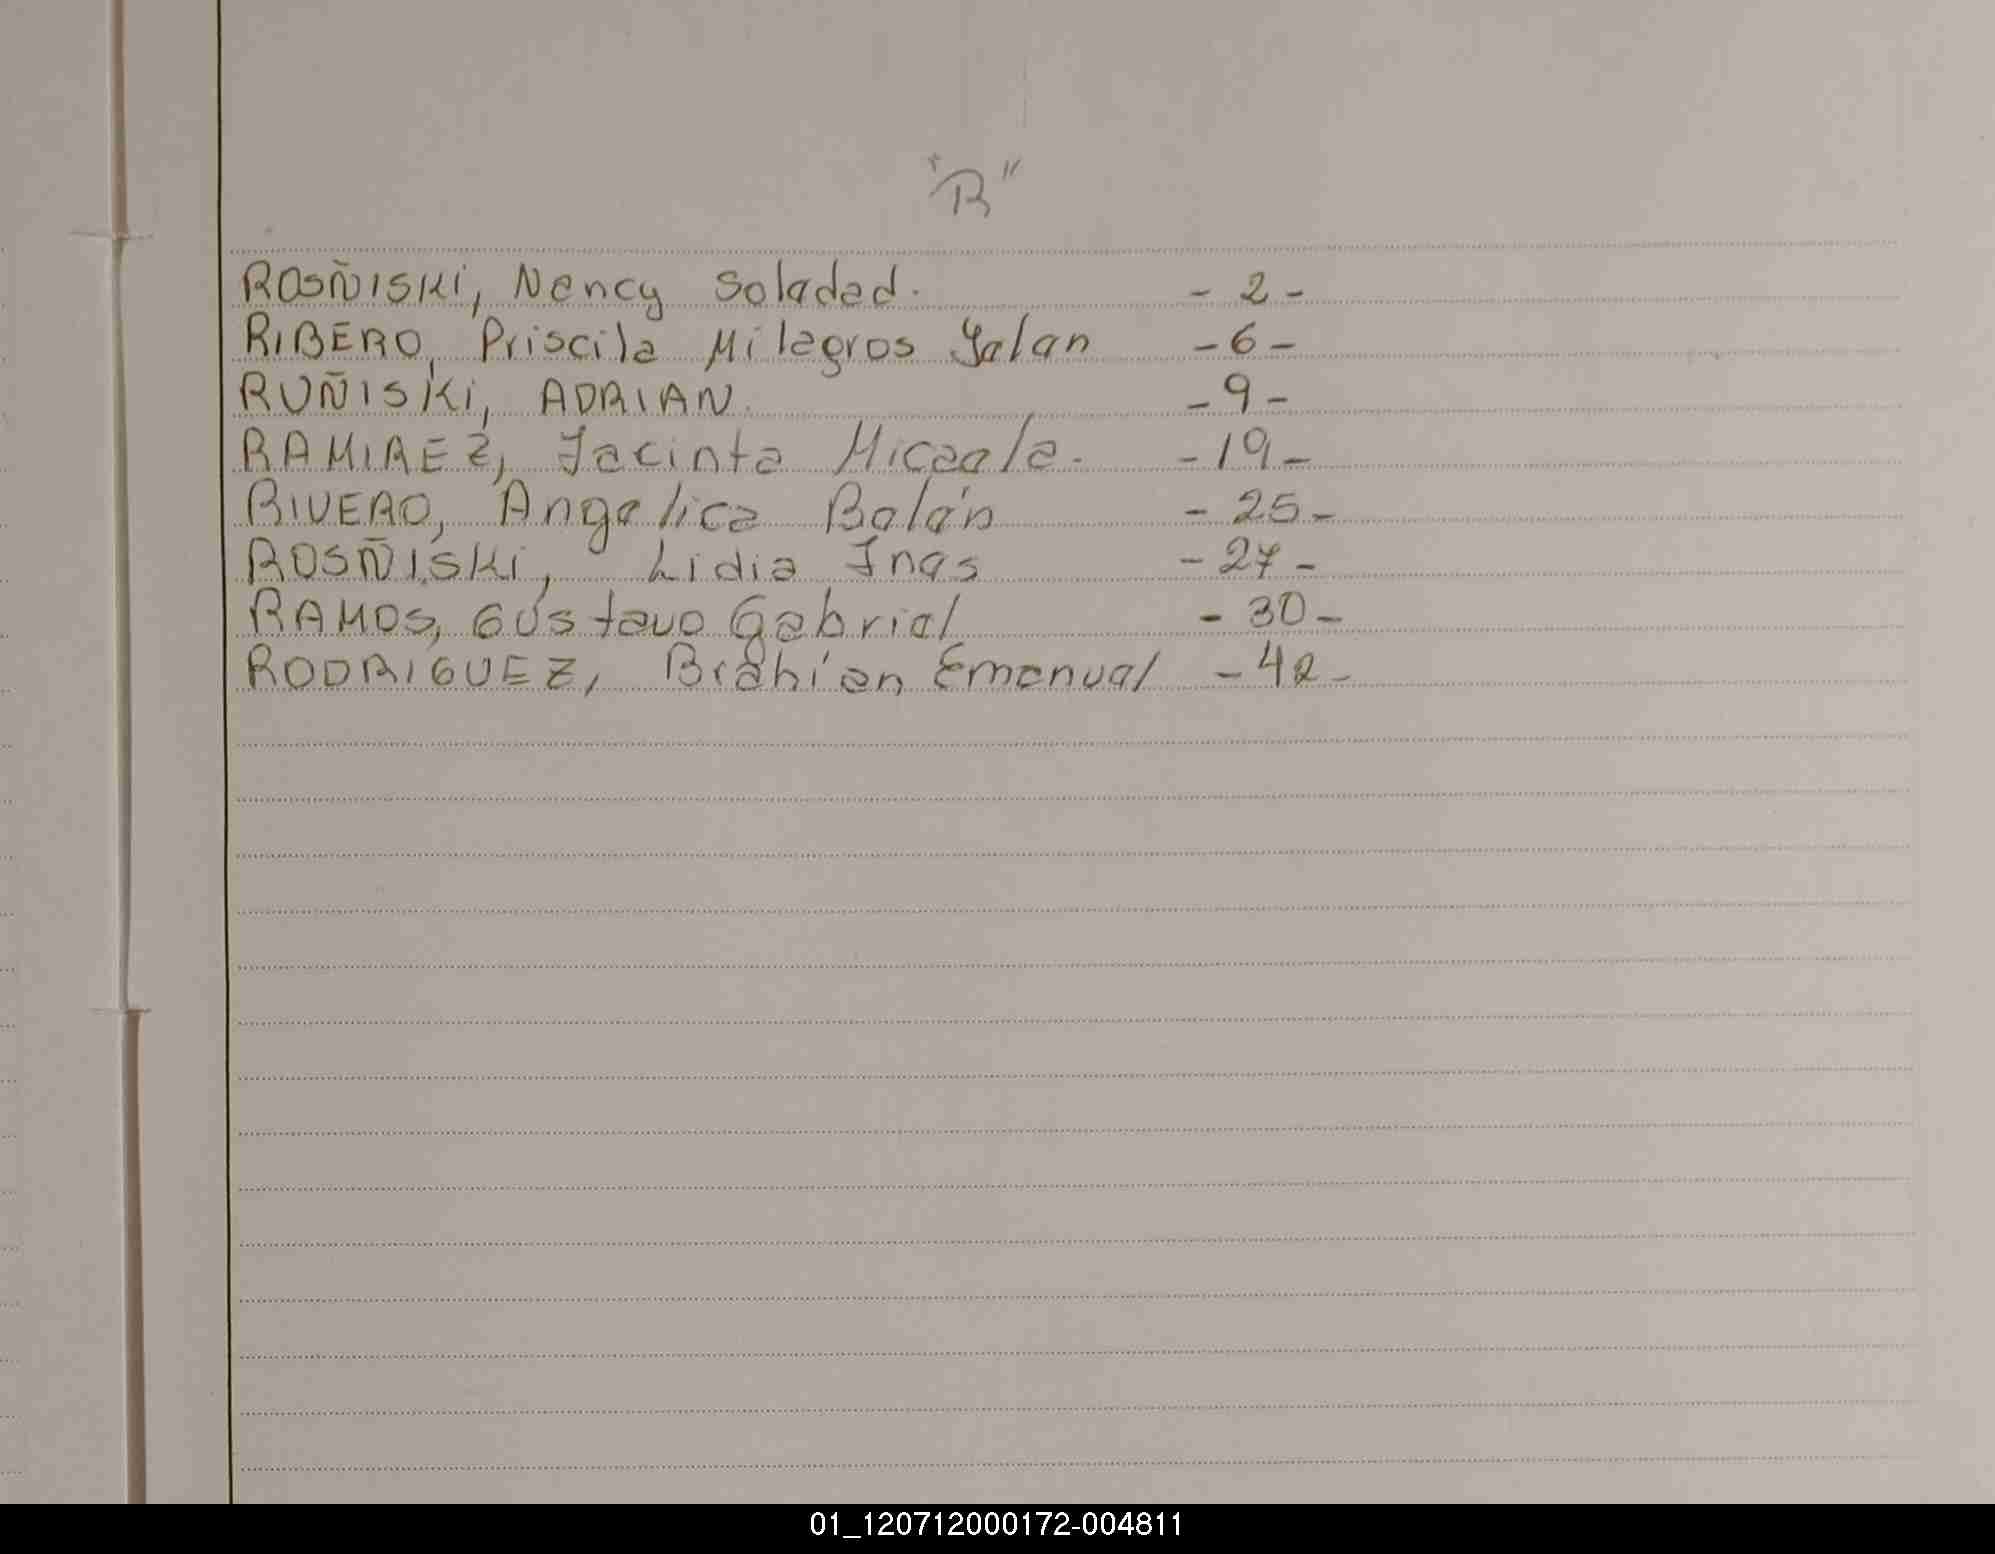 "R"
ROSÑISKI, Nancy Soledad. - 2 -
RIBERO, Priscila Milagros Yalen - 6 -
RUÑISKI, ADRIAN. - 9 -
RAMIREZ, Jacinta Micaela. - 19 -
RIVERO, Angelica Belén - 25 -
ROSÑISKI, Lidia Ines - 27 -
RAMOS, Gustavo Gabriel - 30 -
RODRIGUEZ, Brahian Emanuel - 42 -
01_120712000172-004811